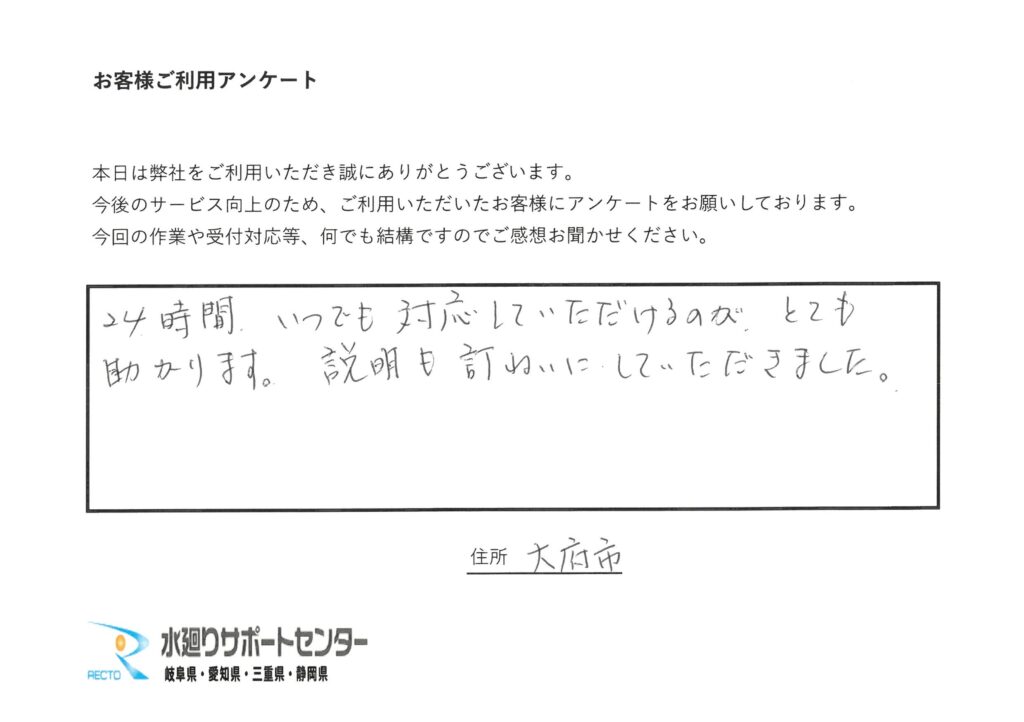 お客様ご利用アンケート
本日は弊社をご利用いただき誠にありがとうございます。
今後のサービス向上のため、ご利用いただいたお客様にアンケートをお願いしております。
今回の作業や受付対応等、何でも結構ですのでご感想お聞かせください。
24時間、いつでも対応していただけるのが、とても
助かります。説明も訂ねいにしていただきました。
住所 大府市
水廻りサポートセンター
RECTO 岐阜県・愛知県・三重県・静岡県